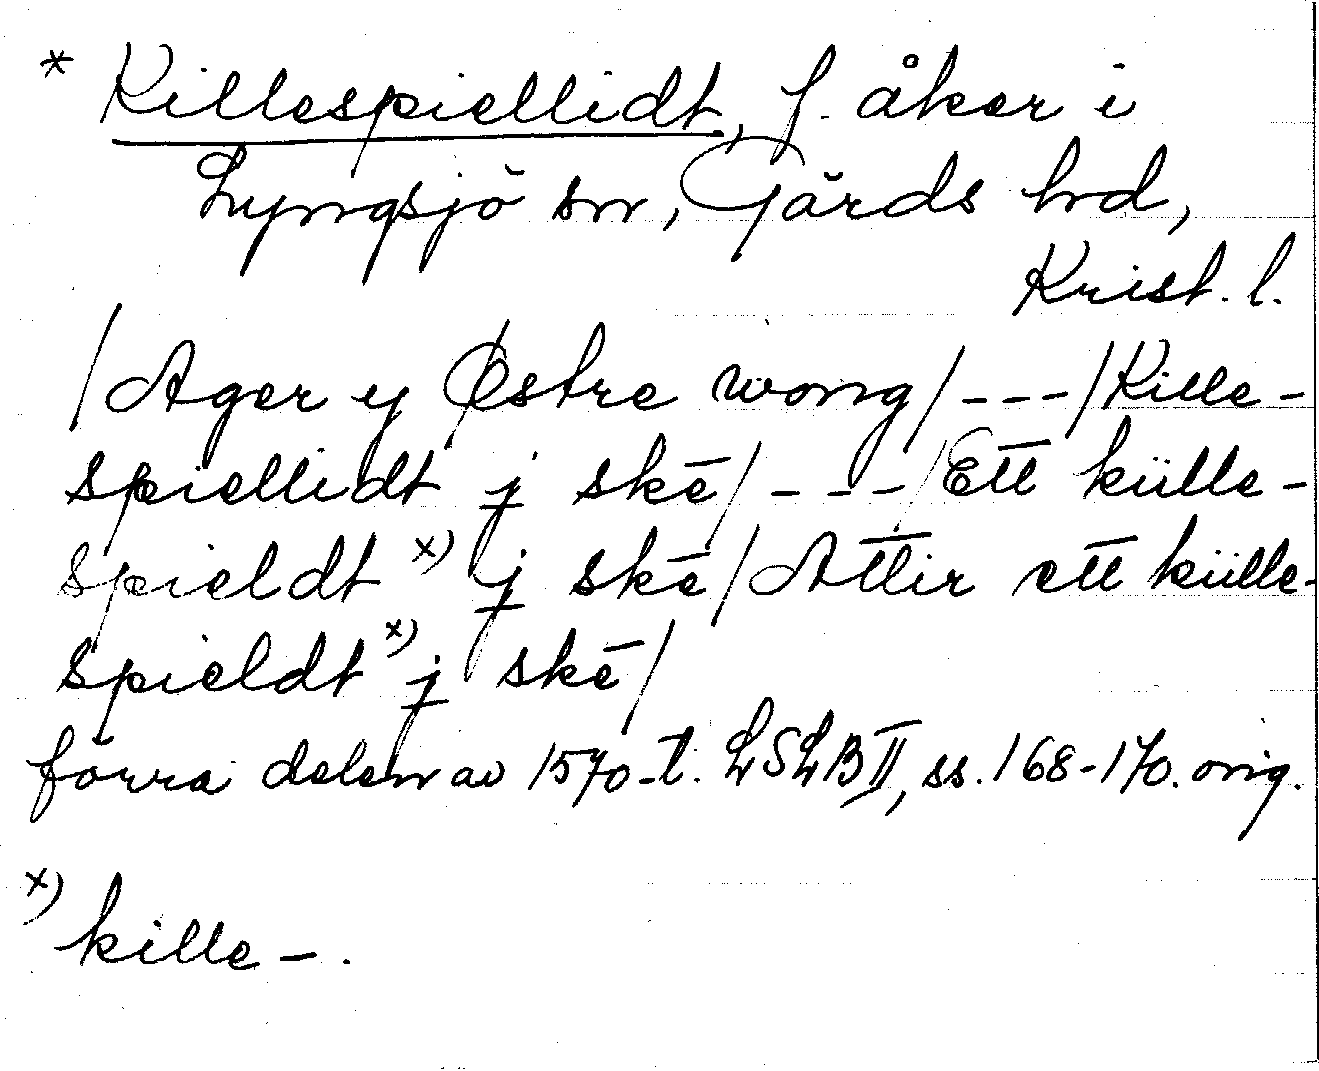 * Killespiellidt, f. åker i
Lyngsjö sn, Gärds hd,
Krist. l.
/Ager y Østre wong/---/Kille-
spiellidt j skē/---/Etlt külle-
spieldt x) j skē/Attir ett külle-
spieldt x) j skē/
förra delen av 1570-t. LSLB II, ss. 168-170. orig.
x) kille-.